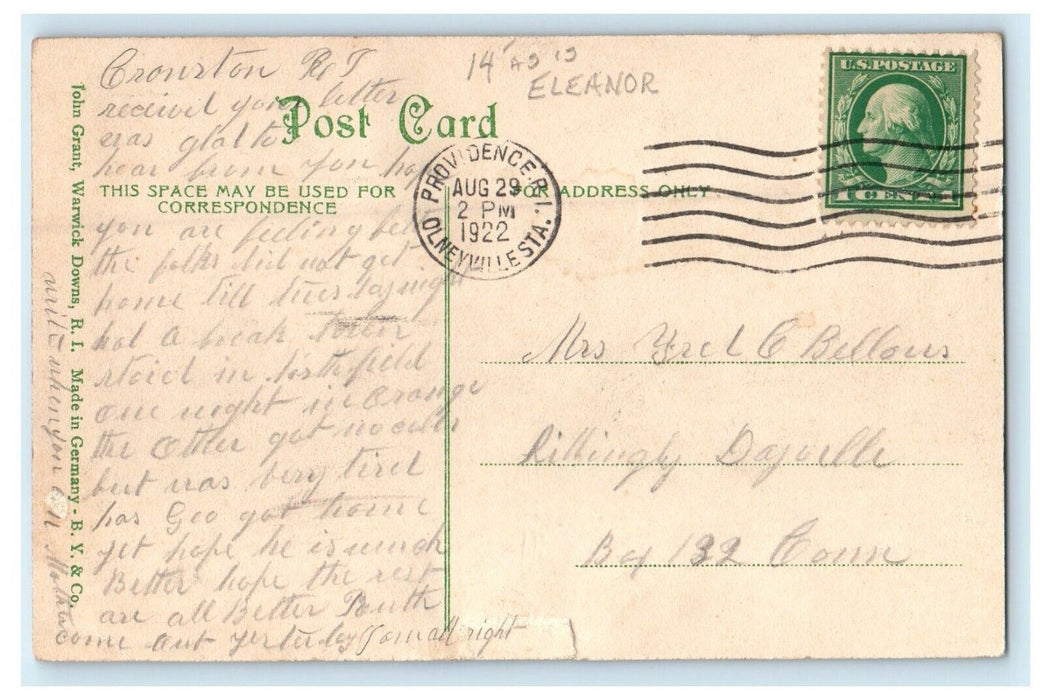 14 AS IS
ELEANOR
U.S. POSTAGE
1 CENT 1
PROVIDENCE, R.I.
AUG 29
2 PM
1922
OLNEYVILLE STA.
Post Card
THIS SPACE MAY BE USED FOR
CORRESPONDENCE
FOR ADDRESS ONLY
John Grant, Warwick Downs, R. I. Made in Germany - B. Y. & Co.
Cronston R I
received your letter
was glad to
hear from you hop
you are feeling bet
the folks did not get
home till tuesday night
had a break
staid in Northfield
one night in Orange
the Other got no
but was very tired
has Geo got home
yet hope he is much
Better hope the rest
are all Better Ruth
come out yesterday I am all right
write when you can Mother
Mrs Fred C Bellows
Killingly Dayville
Box 132 Conn